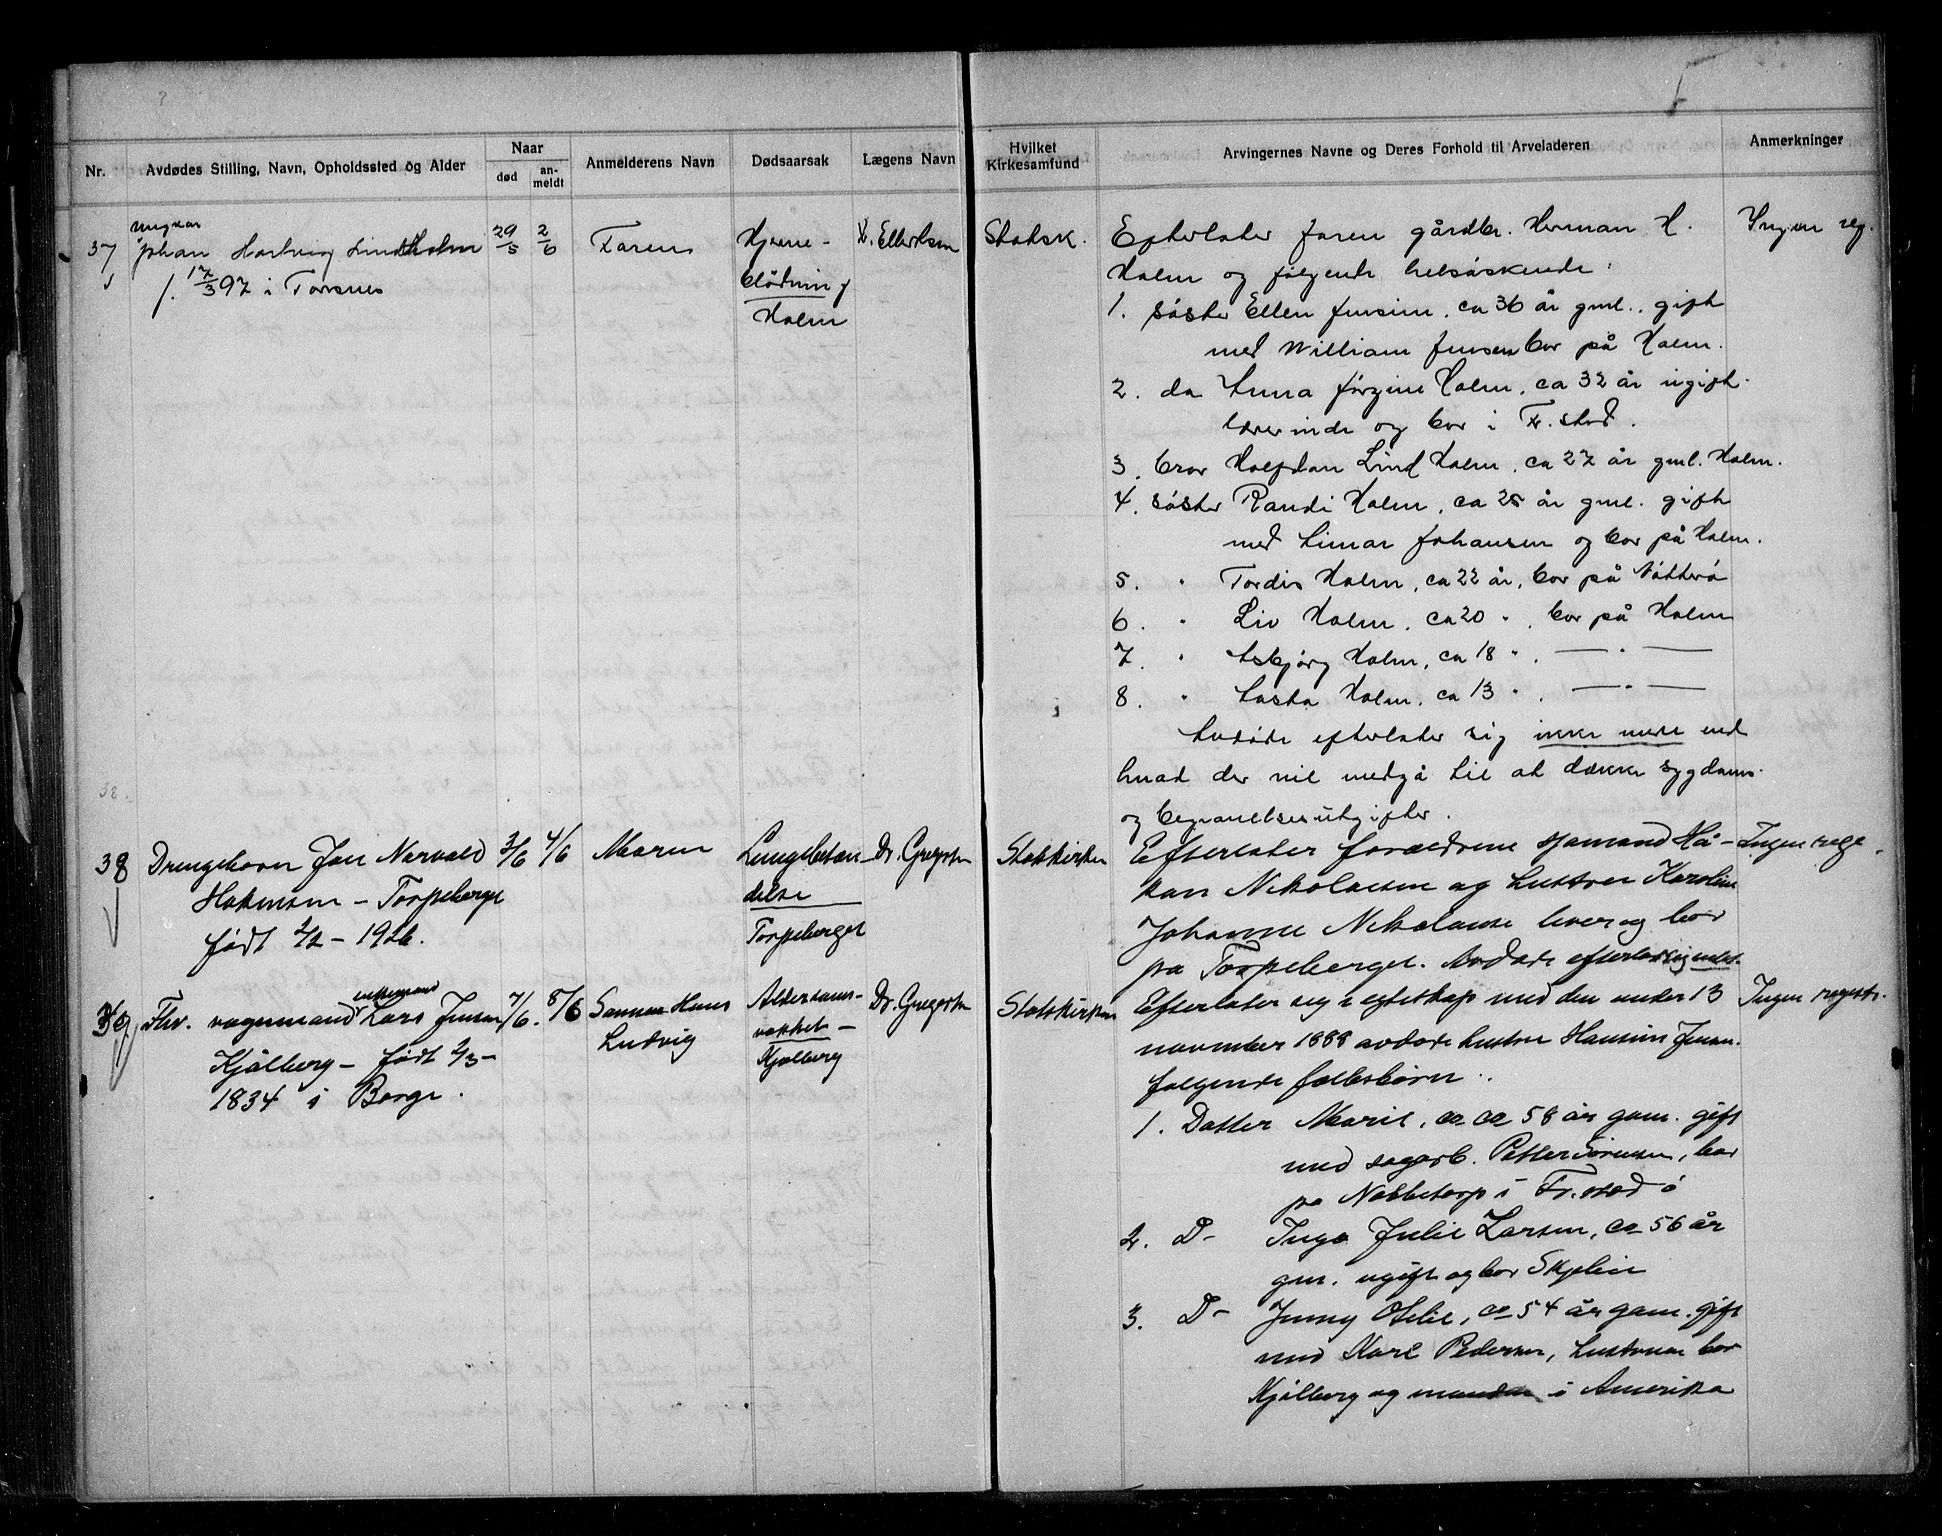 Nr.
Avdødes Stilling, Navn, Opholdssted og Alder
Naar
død
an-
meldt
Anmelderens Navn
Dødsaarsak
Lægens Navn
Hvilket
Kirkesamfund
Arvingernes Navne og Deres Forhold til Arveladeren
Anmerkninger
37
ungkar
Johan Hartvig Lind Holm
f. 17/3 97 i Torsnes
29/5
2/6
Faren
Hjerne-
blødning
Holm
Ellertsen
Statsk.
Efterlater faren gårdbr. Herman H.
Holm og følgende helsøskende:
1. søster Ellen Jensine, ca 36 år gml., gift
med William Jensen bor på Holm.
2. do Anna Jørgine Holm, ca 32 år ugift.
lærerinde og bor i Fr.stad.
3. bror Halfdan Lind Holm, ca 27 år gml. Holm.
4. søster Randi Holm, ca 25 år gml. gift
med Einar Johansen og bor på Holm.
5. " Tordis Holm, ca 22 år, bor på Nøtterø
6. " Liv Holm, ca 20 ", bor på Holm
7. " Asbjørg Holm, ca 18 ", — " —
8. " Aasta Holm, ca 13 ", — " —
Avdøde efterlater sig ikke mere end
hvad der vil medgå til at dække sygdoms-
og begravelsesutgifter.
Ingen reg.
38.
38
Drengebarn Jan Norvald
Hakonsen – Torpeberget
født 2/2 – 1926.
3/6
4/6
Moren
Lungebetæn-
delse
Torpeberget
Dr. Gregersen
Statskirken
Efterlater forældrene sjømand Hå-
kon Nikolaisen og hustru Karoline
Johanne Nikolaisen lever og bor
på Torpeberget. Avdøde efterlot sig intet.
Ingen reg.
39
Fhv. vognmand enkemand Lars Jensen
Kjølberg – født 2/3 –
1834 i Borge.
7/6.
8/6
Sønnen Hans
Ludvig
Alderdoms-
svakhet –
Kjølberg
Dr. Gregersen
Statskirken
Efterlater sig i egteskap med den under 13
november 1888 avdøde hustru Hansine Jensen
følgende fellesbørn:
1. Datter Marie, ca ca 58 år gam. gift
med sagarb. Petter Sørensen, bor
på Nabbetorp i Fr.stad ø
2. D– Inga Julie Larsen, ca 56 år
gm. ugift og bor Skjelin
3. D– Jenny Otelie, ca 54 år gam. gift
med Karl Pedersen, hustruen bor
Kjølberg og manden i Amerika
Ingen registr.